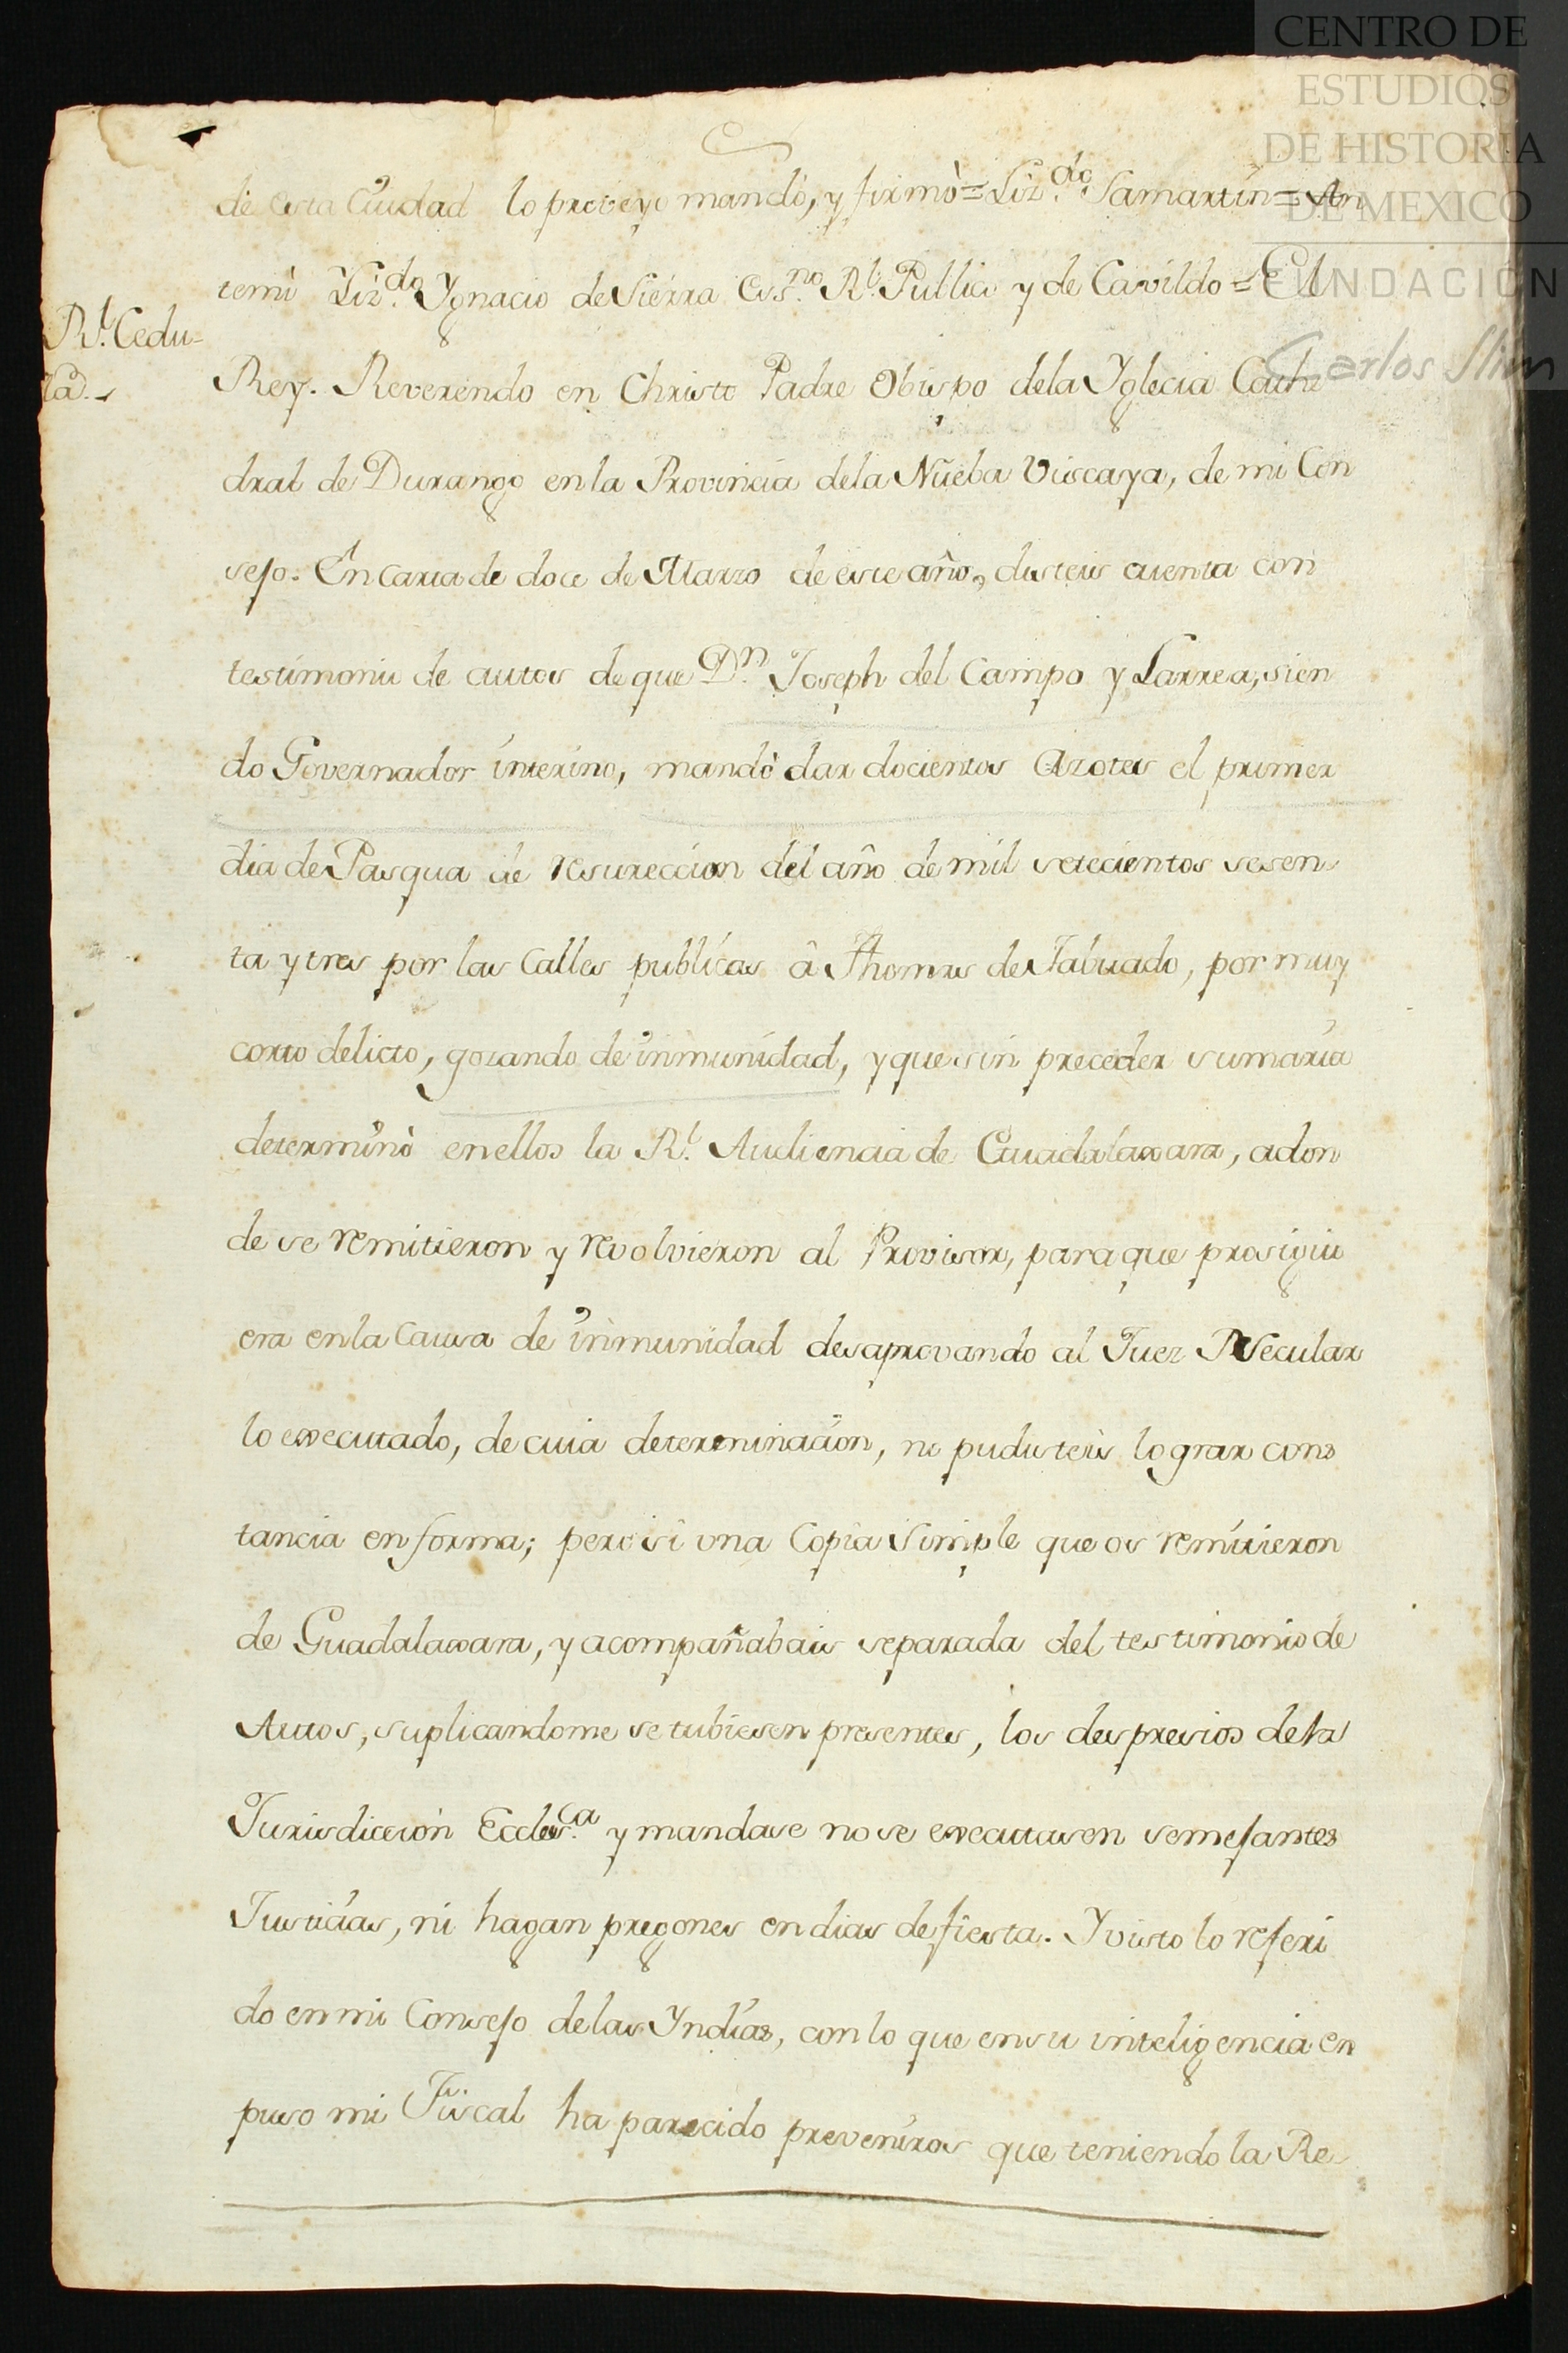 CENTRO DE
ESTUDIOS
DE HISTORIA
DE MEXICO
FUNDACIÓN
Carlos Slim
de esta Ciudad lo proveyo mandò, y firmò = Liz.do Samartin = An
temi Liz.do Ygnacio de Sierra Ess.no Rl. Publico y de Cavildo = El
Rl. Cedu-
la.
Rey. Reverendo en Christo Padre Obispo dela Yglecia Cathe
dral de Durango en la Provincia dela Nueba Viscaya, de mi Con
sejo. En carta de doce de Marzo de este año, disteis cuenta con
testimonio de autos de que Dn. Joseph del Campo y Larrea, sien
do Governador interino, mandò dar docientos Azotes el primer
dia de Pasqua de resureccion del año de mil setecientos sesen
ta y tres por las Calles publicas â Thomas de Tabuado, por muy
corto delicto, gozando de inmunidad, y que sin preceder sumaria
determinò en ellos la Rl. Audiencia de Guadalaxara, adon
de se remitieron y revolvieron al Provisor, para que prosigui
era en la Causa de inmunidad desaprovando al Juez Secular
lo executado, de cuia determinacion, no pudisteis lograr cons
tancia en forma; pero si una Copia Simple que os remitieron
de Guadalaxara, y acompañabais separada del testimonio de
Autos, suplicandome se tubiesen presentes, los despresios de la
Jurisdiccion Eccles.ca y mandase no se executasen semejantes
Justicias, ni hagan pregones en dias de fiesta. Y visto lo referi
do en mi Consejo de las Yndias, con lo que en su inteligencia ex
puso mi Fiscal ha parecido preveniros que teniendo la Re